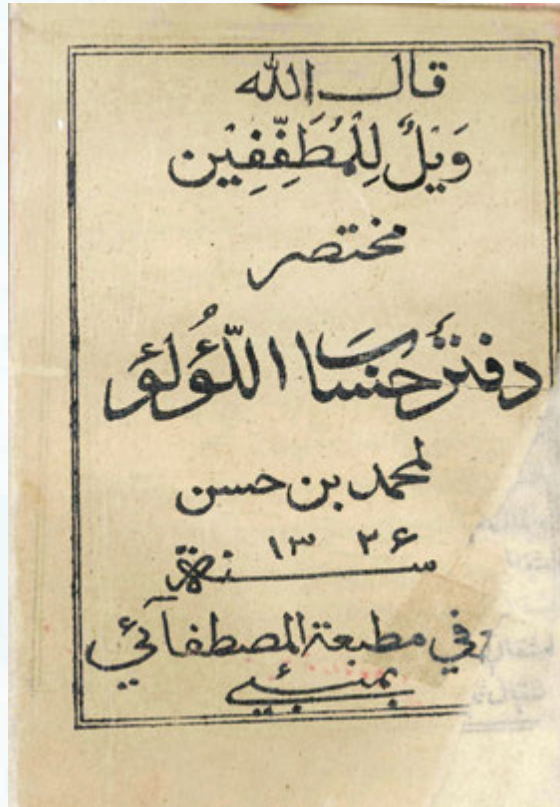 قال الله
وَيْلٌ لِلْمُطَفِّفِيْن
مختصر
دفتر حساب اللُّؤلُؤ
لمحمد بن حسن
سنة ١٣٢۶
في مطبعة المصطفآئي
بمبئي